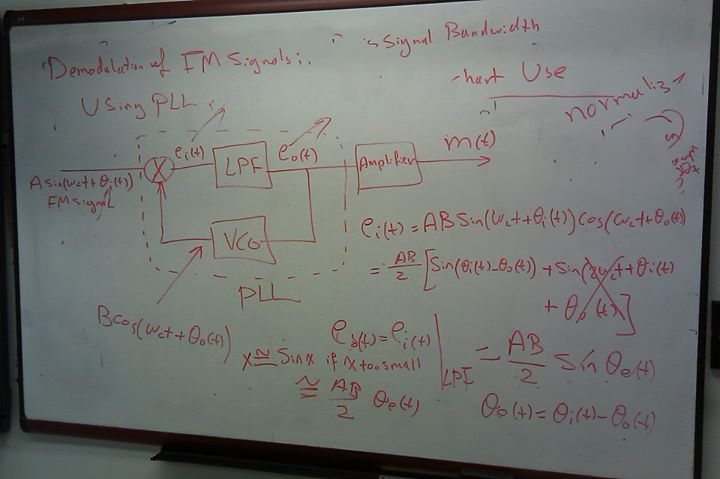 Demodulation of FM Signals:.
Using PLL.
Signal Bandwidth
chart Use
normaliz
ei(t)
LPF
eo(t)
Amplifier
m(t)
X
A sin(ωct+θi(t))
FM signal
VCO
PLL
Bcos(ωct+θo(t))
ei(t) = AB Sin(ωct+θi(t)) Cos(ωct+θo(t)
= AB/2 [Sin(θi(t)-θo(t)) + Sin(2ωct+θi(t)
+ θo(t))]
eo(t) = ei(t)|LPF = AB/2 Sin θe(t)
x ≅ Sin x if x too small
≅ AB/2 θe(t)
θe(t) = θi(t)-θo(t)